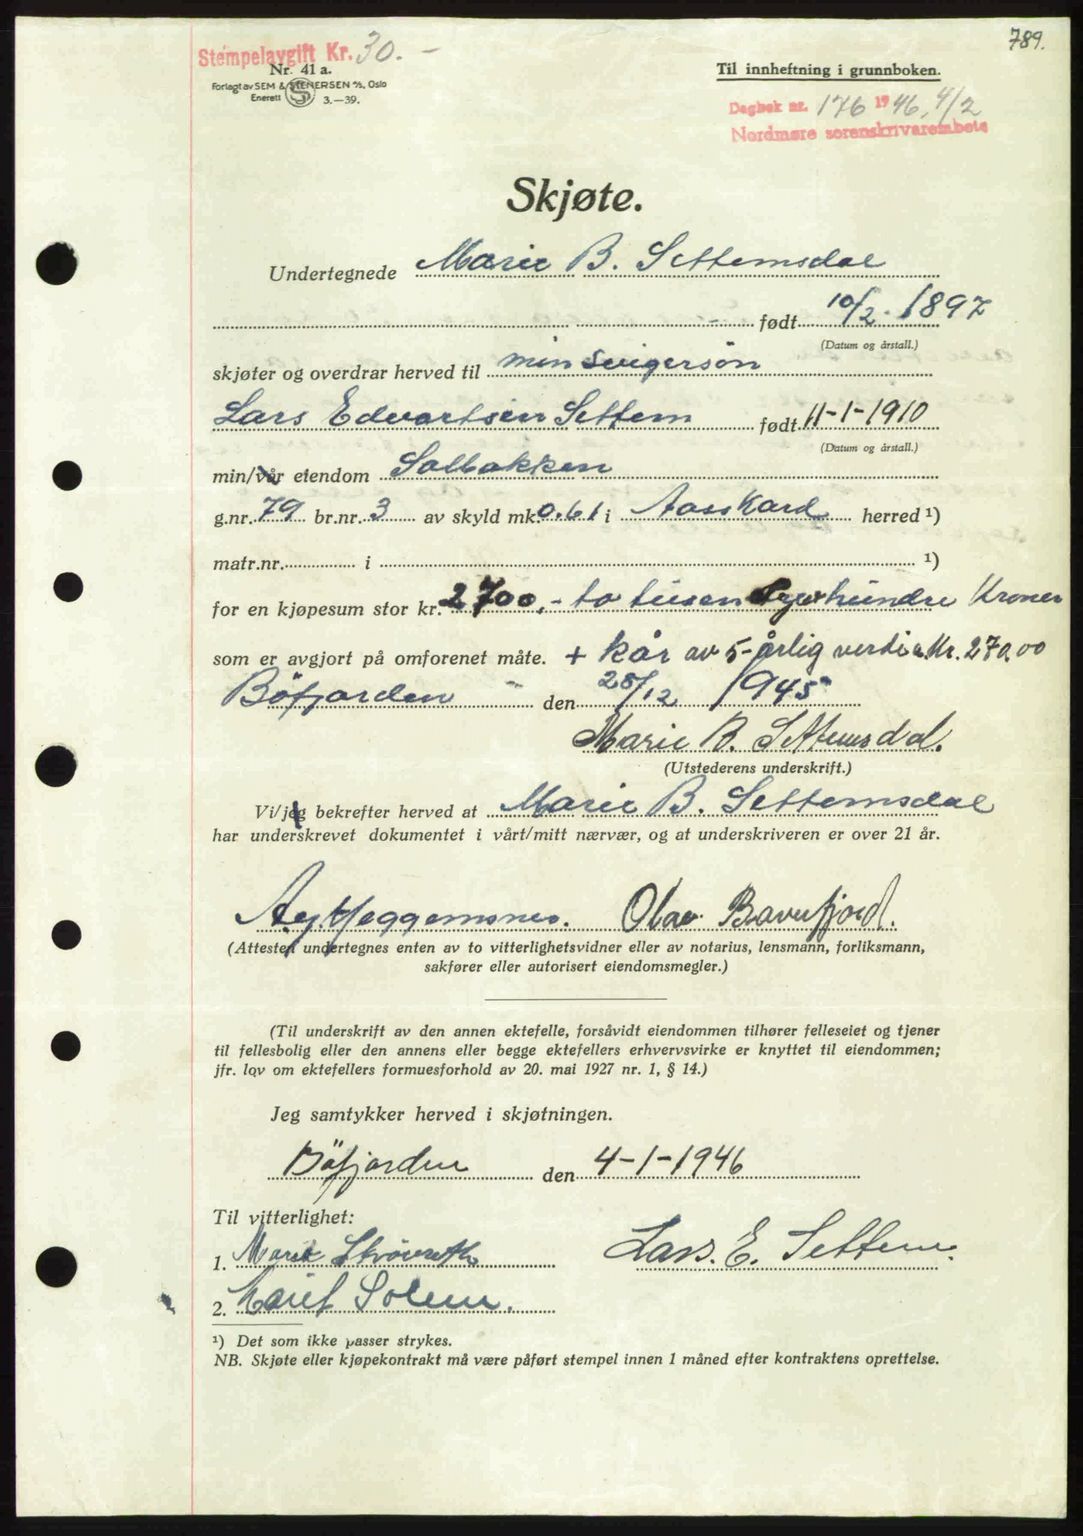 789.
Stempelavgift Kr. 30.-
Nr. 41 a.
Forlagt av SEM & STENERSEN A/S, Oslo
Enerett 3.—39.
Til innheftning i grunnboken.
Dagbok nr. 176 1946, 4/2
Nordmøre sorenskriverembete
Skjøte.
Undertegnede Marie B. Settemsdal
født 10/2. 1897
(Datum og årstall.)
skjøter og overdrar herved til min Svigersön
Lars Edvartsen Settem født 11-1-1910
(Datum og årstall.)
min/vår eiendom Solbakken
g.nr. 79 br.nr. 3 av skyld mk. 0.61 i Aasskard herred ¹)
matr.nr. i ¹)
for en kjøpesum stor kr. 2700,- to tusen syvhundre Kroner
som er avgjort på omforenet måte. + kår av 5-årlig verdi a Kr. 270,00
Böfjorden den 28/12 1945
Marie B. Settemsdal.
(Utstederens underskrift.)
Vi/jeg bekrefter herved at Marie B. Settemsdal
har underskrevet dokumentet i vårt/mitt nærvær, og at underskriveren er over 21 år.
Heggemsnes. Olav Bævefjord.
(Attesten undertegnes enten av to vitterlighetsvidner eller av notarius, lensmann, forliksmann,
sakfører eller autorisert eiendomsmegler.)
(Til underskrift av den annen ektefelle, forsåvidt eiendommen tilhører felleseiet og tjener
til fellesbolig eller den annens eller begge ektefellers erhvervsvirke er knyttet til eiendommen;
jfr. lov om ektefellers formuesforhold av 20. mai 1927 nr. 1, § 14.)
Jeg samtykker herved i skjøtningen.
Böfjorden den 4-1-1946
Til vitterlighet:
1. Marit
Lars. E. Settem.
2. Marit Solem.
¹) Det som ikke passer strykes.
NB. Skjøte eller kjøpekontrakt må være påført stempel innen 1 måned efter kontraktens oprettelse.